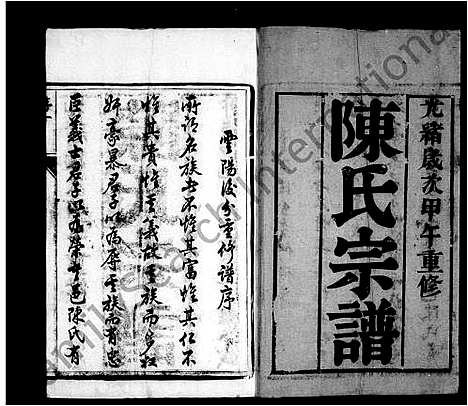 光緒歲次甲午重修
陳氏宗譜
雲陽後分重修譜序
所謂名族者不惟其富惟其仁不
惟其貴惟其義故名族而多奴
奸豪暴君子以為辱其族而有忠
臣義士君子以為榮吾邑陳氏有
Family Search International